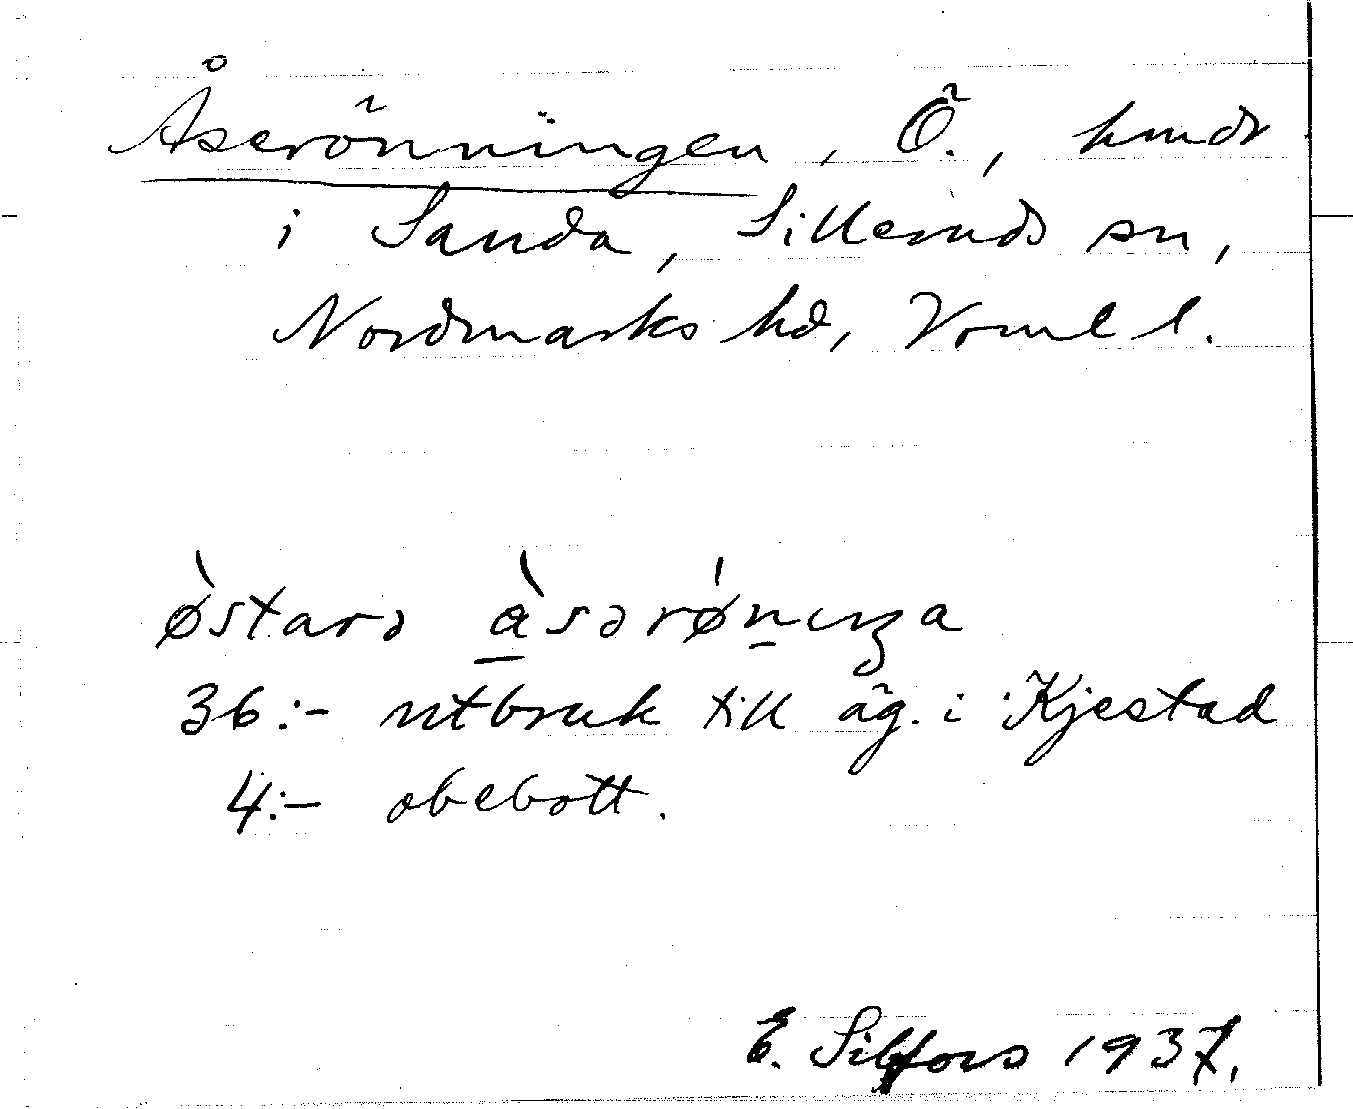 Åserönningen, Ö., hmdr
i Sanda, Silleruds sn,
Nordmarks hd, Vrml l.
østarə àsərønıŋa
36:- utbruk till äg. i Kjestad
4:- obebott.
E. Silfors 1937.